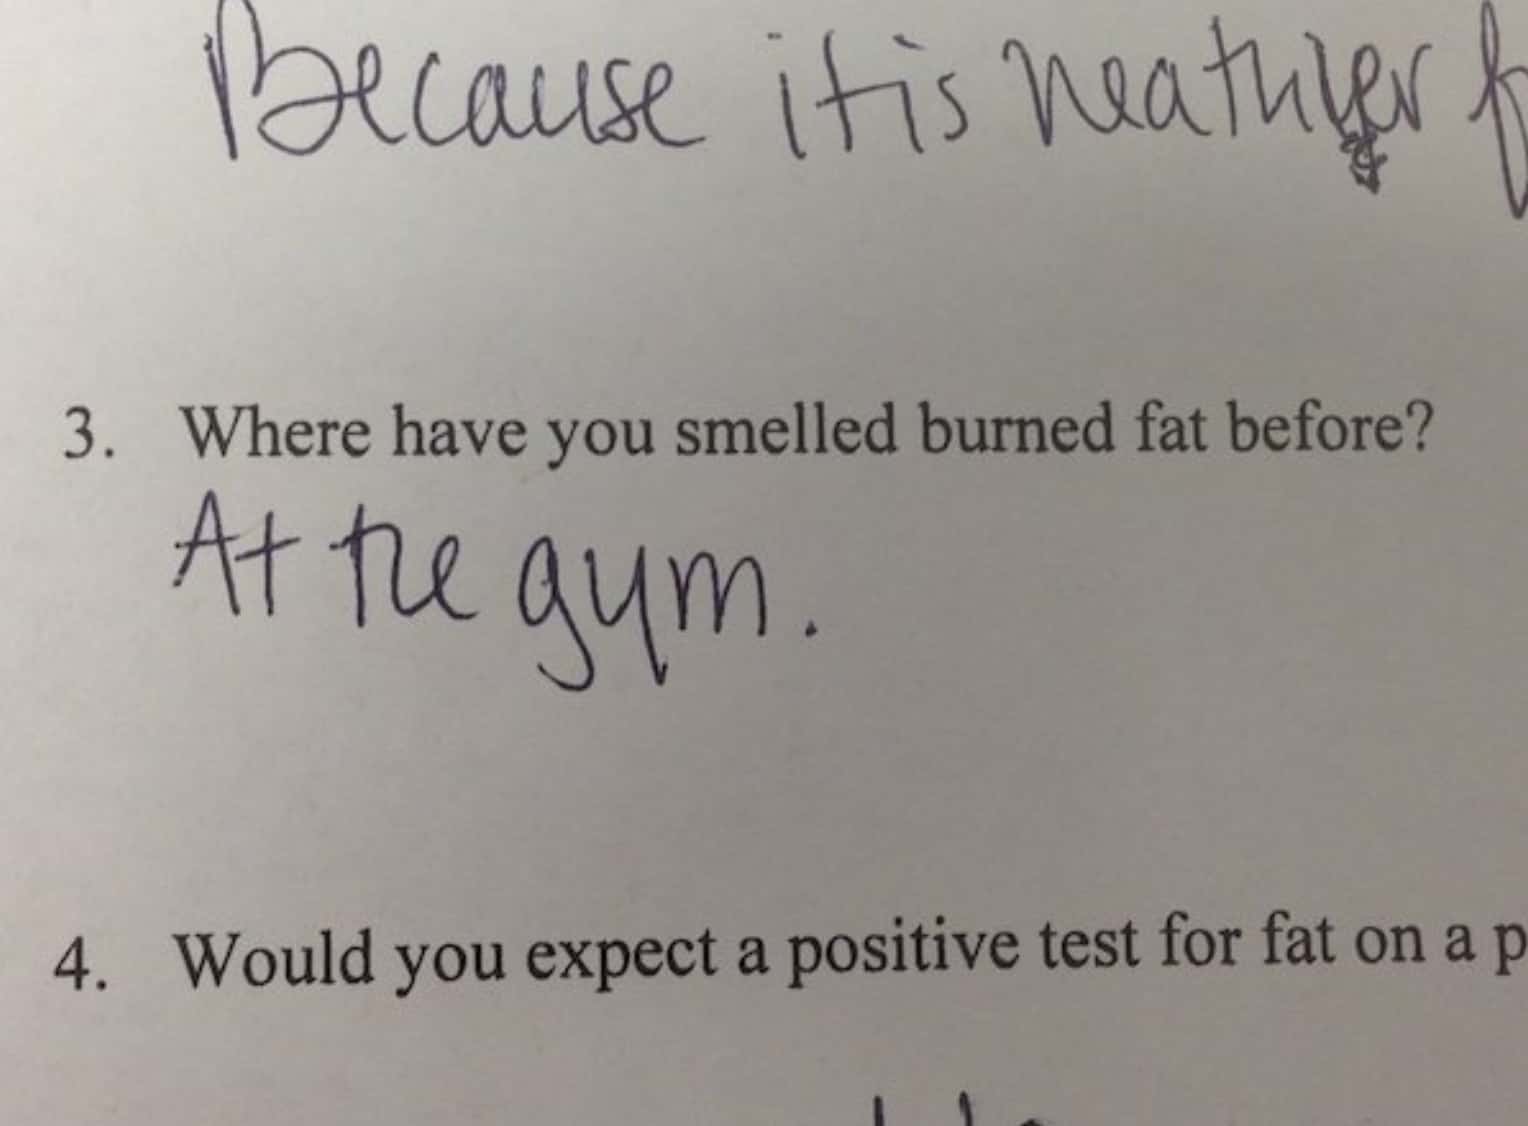 Because it is heathier
3. Where have you smelled burned fat before?
At the gym.
4. Would you expect a positive test for fat on a p